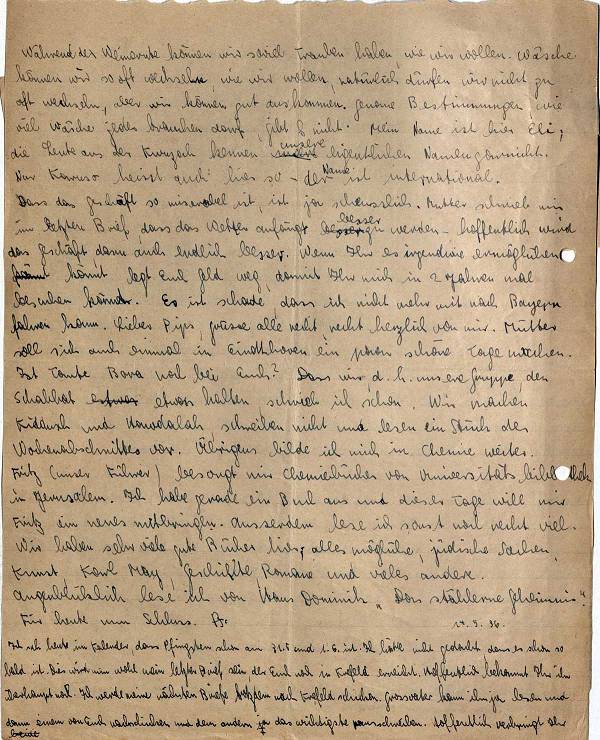 Während der Weinernte können wir soviel Trauben haben, wie wir wollen. Wäsche
können wir so oft wechseln, wie wir wollen, natürlich dürfen wir nicht zu
oft wechseln, aber wir können gut auskommen. genaue Bestimmungen wie
viel wäsche jeder brauchen darf, gibt es nicht. Mein Name ist hier Eli,
die Leute aus der Kwuzah kennen unsere eigentlichen Namen garnicht.
Nur Karuso heisst auch hier so - der Name ist international.
Dass das geschäft so miserabel ist, ist ja scheusslich. Mutter schrieb mir
im letzten Brief dass das Wetter anfängt besser zu werden - hoffentlich wird
das geschäft dann auch endlich besser. Wenn Ihr es irgendwie ermöglichen
könnt legt Euch geld weg, damit Ihr mich in 2 Jahren mal
besuchen könnt. Es ist schade dass ich nicht mehr mit nach Bayern
fahren kann. Lieber Pips, grüsse alle recht, recht herzlich von mir. Mutter
soll sich auch einmal in Eindhoven ein paar schöne Tage machen.
Ist Tante Bora noch bei Euch? Dass wir d.h. unsere gruppe, den
Schabbat etwas halten schrieb ich schon. Wir machen
Kidusch und Hawdalah schreiben nicht und lesen ein Stück des
Wochenabschnittes vor. Übrigens bilde ich mich in Chemie weiter.
Fritz (unser Führer) besorgt mir Chemiebücher von Universitäts bibliothek
in Jerusalem. Ich habe gerade ein Buch aus und dieser Tage will mir
Fritz ein neues mitbringen. Ausserdem lese ich sonst noch recht viel.
Wir haben sehr viele gute Bücher hier, alles mögliche, jüdische Sachen,
Kunst, Karl May, Geschichte, Romane und vieles andere.
Augenblicklich lese ich von Hans Dominik "Das stählerne Geheimnis".
Für heute nun Schluss. 5. 36.
Ich seh heute im Kalender dass Pfingsten schon am 31.5 und 1.6. ist. Ich hätte nicht gedacht dass es schon so
bald ist. Dies wird nun wohl mein letzter Brief sein der Euch noch in Krefeld erreicht. Hoffentlich bekommt Ihr ihn
überhaupt noch. Ich werde meine nächsten Briefe trotzdem nach Krefeld schicken. Grossvater kann ihn ja lesen und
dann einem von Euch nachschicken und dem andern das wichtigste rausschreiben. Hoffentlich verbringt Ihr
beide